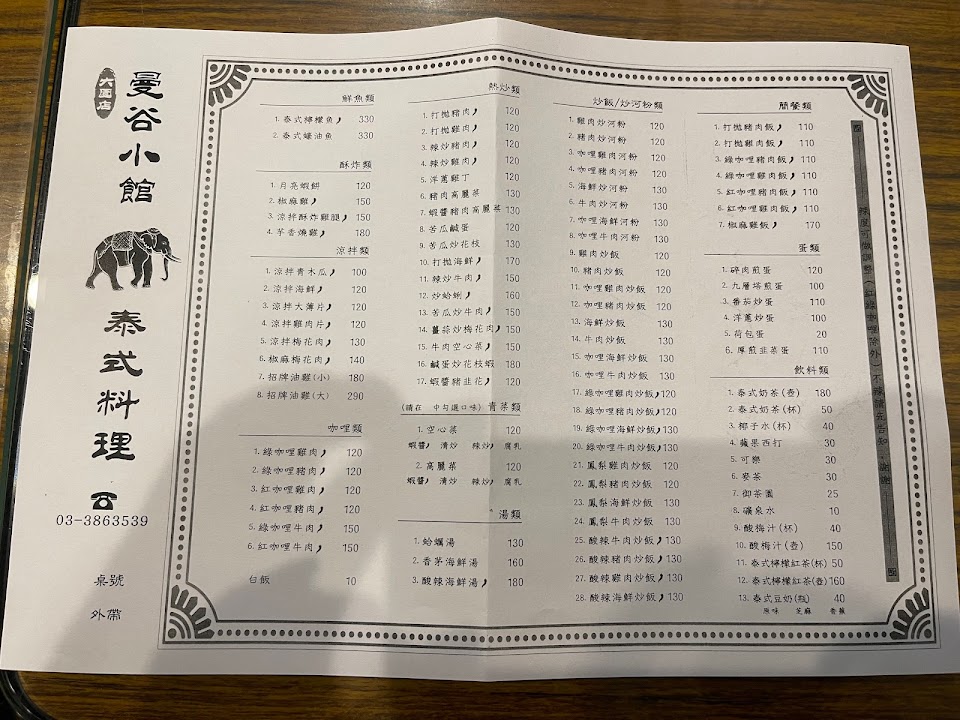 大園店
曼谷小館
泰式料理
☎
03-3863539
桌號
外帶
鮮魚類
1. 泰式檸檬魚 330
2. 泰式蠔油魚 330
酥炸類
1. 月亮蝦餅 120
2. 椒麻雞 150
3. 涼拌酥炸雞腿 150
4. 芋香燒雞 180
涼拌類
1. 涼拌青木瓜 100
2. 涼拌海鮮 120
3. 涼拌大薄片 120
4. 涼拌雞肉片 120
5. 涼拌梅花肉 130
6. 椒麻梅花肉 140
7. 招牌油雞(小) 180
8. 招牌油雞(大) 290
咖哩類
1. 綠咖哩雞肉 120
2. 綠咖哩豬肉 120
3. 紅咖哩雞肉 120
4. 紅咖哩豬肉 120
5. 綠咖哩牛肉 150
6. 紅咖哩牛肉 150
白飯 10
熱炒類
1. 打拋豬肉 120
2. 打拋雞肉 120
3. 辣炒豬肉 120
4. 辣炒雞肉 120
5. 洋蔥雞丁 120
6. 豬肉高麗菜 130
7. 蝦醬豬肉高麗菜 130
8. 苦瓜鹹蛋 120
9. 苦瓜炒花枝 130
10. 打拋海鮮 170
11. 辣炒牛肉 150
12. 炒蛤蜊 160
13. 苦瓜炒牛肉 150
14. 薑蒜炒梅花肉 150
15. 牛肉空心菜 150
16. 鹹蛋炒花枝蝦 180
17. 蝦醬豬韭花 120
(請在 中勾選口味) 青菜類
1. 空心菜 120
蝦醬 清炒 辣炒 腐乳
2. 高麗菜 120
蝦醬 清炒 辣炒 腐乳
湯類
1. 蛤蠣湯 130
2. 香茅海鮮湯 160
3. 酸辣海鮮湯 180
炒飯/炒河粉類
1. 雞肉炒河粉 120
2. 豬肉炒河粉 120
3. 咖哩雞肉河粉 120
4. 咖哩豬肉河粉 120
5. 海鮮炒河粉 130
6. 牛肉炒河粉 130
7. 咖哩海鮮河粉 130
8. 咖哩牛肉河粉 130
9. 雞肉炒飯 120
10. 豬肉炒飯 120
11. 咖哩雞肉炒飯 120
12. 咖哩豬肉炒飯 120
13. 海鮮炒飯 130
14. 牛肉炒飯 130
15. 咖哩海鮮炒飯 130
16. 咖哩牛肉炒飯 130
17. 綠咖哩雞肉炒飯 120
18. 綠咖哩豬肉炒飯 120
19. 綠咖哩海鮮炒飯 130
20. 綠咖哩牛肉炒飯 130
21. 鳳梨雞肉炒飯 120
22. 鳳梨豬肉炒飯 120
23. 鳳梨海鮮炒飯 130
24. 鳳梨牛肉炒飯 130
25. 酸辣牛肉炒飯 130
26. 酸辣豬肉炒飯 130
27. 酸辣雞肉炒飯 130
28. 酸辣海鮮炒飯 130
簡餐類
1. 打拋豬肉飯 110
2. 打拋雞肉飯 110
3. 綠咖哩豬肉飯 110
4. 綠咖哩雞肉飯 110
5. 紅咖哩豬肉飯 110
6. 紅咖哩雞肉飯 110
7. 椒麻雞飯 170
蛋類
1. 碎肉煎蛋 120
2. 九層塔煎蛋 100
3. 番茄炒蛋 110
4. 洋蔥炒蛋 100
5. 荷包蛋 20
6. 厚煎韭菜蛋 110
飲料類
1. 泰式奶茶(壺) 180
2. 泰式奶茶(杯) 50
3. 椰子水(杯) 40
4. 蘋果西打 30
5. 可樂 30
6. 麥茶 30
7. 御茶園 25
8. 礦泉水 10
9. 酸梅汁(杯) 40
10. 酸梅汁(壺) 150
11. 泰式檸檬紅茶(杯) 50
12. 泰式檸檬紅茶(壺) 160
13. 泰式豆奶(瓶) 40
原味 芝麻 香蕉
辣度可做調整(紅綠咖哩除外)不辣請先告知,謝謝